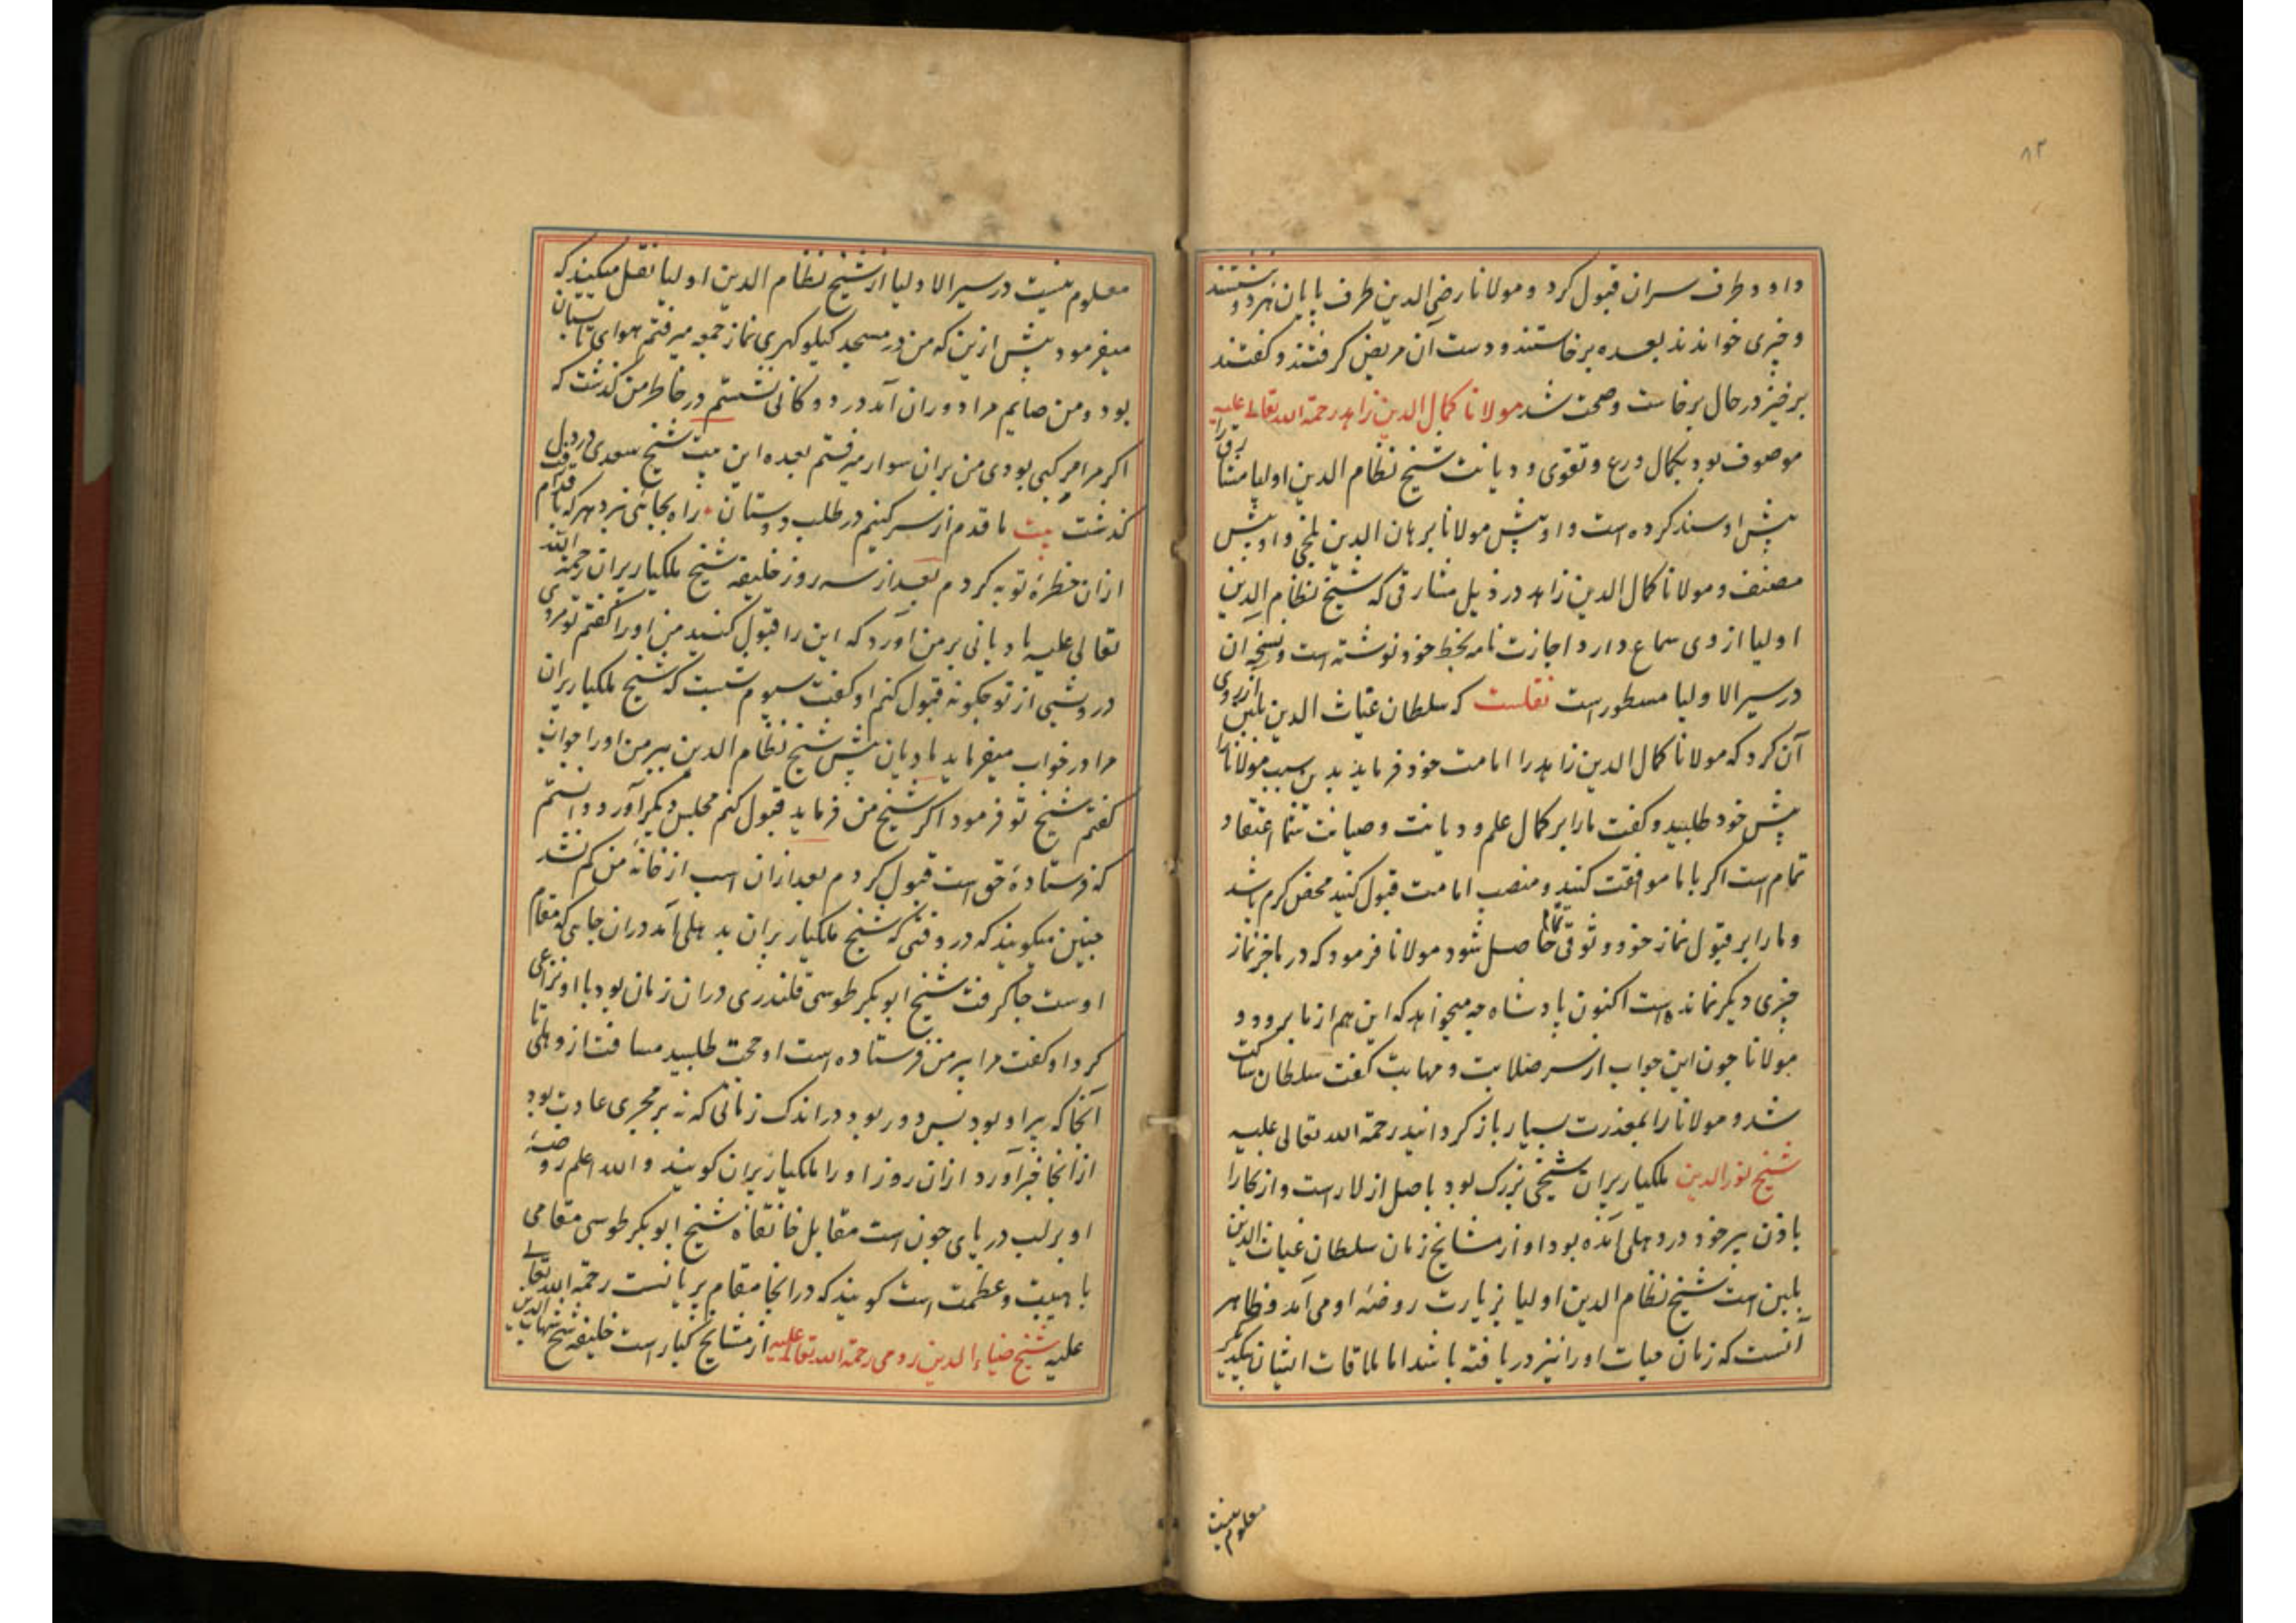 ۸۲
داود و طرف سران قبول کرد و مولانا رضی الدین طرف پایان هردو نشستند
و چیزی خواندند بعده برخاستند و دست آن مریض گرفتند و گفتند
برخیز در حال برخاست و صحت شد مولانا کمال الدین زاهد رحمة الله تعالی علیه
موصوف بود بکمال ورع و تقوی و دیانت شیخ نظام الدین اولیا مشارق را
پیش او سند کرده است و او پیش مولانا برهان الدین بلخی و او پیش
مصنف و مولانا کمال الدین زاهد در ذیل مشارقی که شیخ نظام الدین
اولیا از وی سماع دارد اجازت نامه بخط خود نوشته است و نسخه آن
در سیر الاولیا مسطور است نقلست که سلطان غیاث الدین بلبن آرزوی
آن کرد که مولانا کمال الدین زاهد را امامت خود فرماید بدین سبب مولانا را
پیش خود طلبید و گفت ما را بر کمال علم و دیانت و صیانت شما اعتقاد
تمام است اگر با ما موافقت کنید و منصب امامت قبول کنید محض کرم باشد
و ما را بر قبول نماز خود وثوقی تمام حاصل شود مولانا فرمود که در ما جز نماز
چیزی دیگر نمانده است اکنون پادشاه چه میخواهد که این هم از ما برود و
مولانا چون این جواب از سر صلابت و مهابت گفت سلطان ساکت
شد و مولانا را بمعذرت بسیار باز گردانید رحمة الله تعالی علیه
شیخ نور الدین ملکیار پران شیخی بزرگ بود باصل از لار است و از بخارا
باذن پیر خود در دهلی آمده بود او از مشایخ زمان سلطان غیاث الدین
بلبن است شیخ نظام الدین اولیا بزیارت روضه او می آمد و ظاهر
آنست که زمان حیات او را نیز دریافته باشد اما ملاقات ایشان بیکدیگر
معلوم نیست
معلوم نیست در سیر الاولیا از شیخ نظام الدین اولیا نقل میکنند که
میفرمود پیش ازین که من در مسجد کیلوکهری نماز جمعه میرفتم هوای تابستان
بود و من صایم مرا دوران آمد در دوکانی نشستم در خاطر من گذشت که
اگر مرا مرکبی بودی من بران سوار میرفتم بعده این بیت شیخ سعدی در دل
گذشت بیت ما قدم از سر کنیم در طلب دوستان راه بجائی نبرد هر که باقدام رفت
ازان خطره توبه کردم بعد از سه روز خلیفه شیخ ملکیار پران رحمة الله
تعالی علیه مادیانی بر من آورد که این را قبول کنید من او را گفتم تو مردی
درویشی از تو چگونه قبول کنم او گفت سیوم شبست که شیخ ملکیار پران
مرا در خواب میفرماید مادیان پیش شیخ نظام الدین ببر من او را جواب
گفتم شیخ تو فرمود اگر شیخ من فرماید قبول کنم مجلس دیگر آورد دانستم
که فرستاده حق است قبول کردم بعد ازان اسب از خانه من کم نشد
چنین میگویند که در وقتی که شیخ ملکیار پران بدهلی آمد دران جای که مقام
اوست جا گرفت شیخ ابوبکر طوسی قلندری دران زمان بود با او نزاعی
کرد او گفت مرا پیر من فرستاده است او حجت طلبید مسافت از دهلی تا
آنجا که پیر او بود بس دور بود در اندک زمانی که نه بر مجری عادت بود
از آنجا خبر آورد ازان روز او را ملکیار پران گویند و الله اعلم روضه
او بر لب دریای جون است مقابل خانقاه شیخ ابوبکر طوسی مقامی
با هیبت و عظمت است گویند که در آنجا مقام پریانست رحمة الله تعالی
علیه شیخ ضیاء الدین رومی رحمة الله تعالی علیه از مشایخ کبار است خلیفه شیخ شهاب الدین